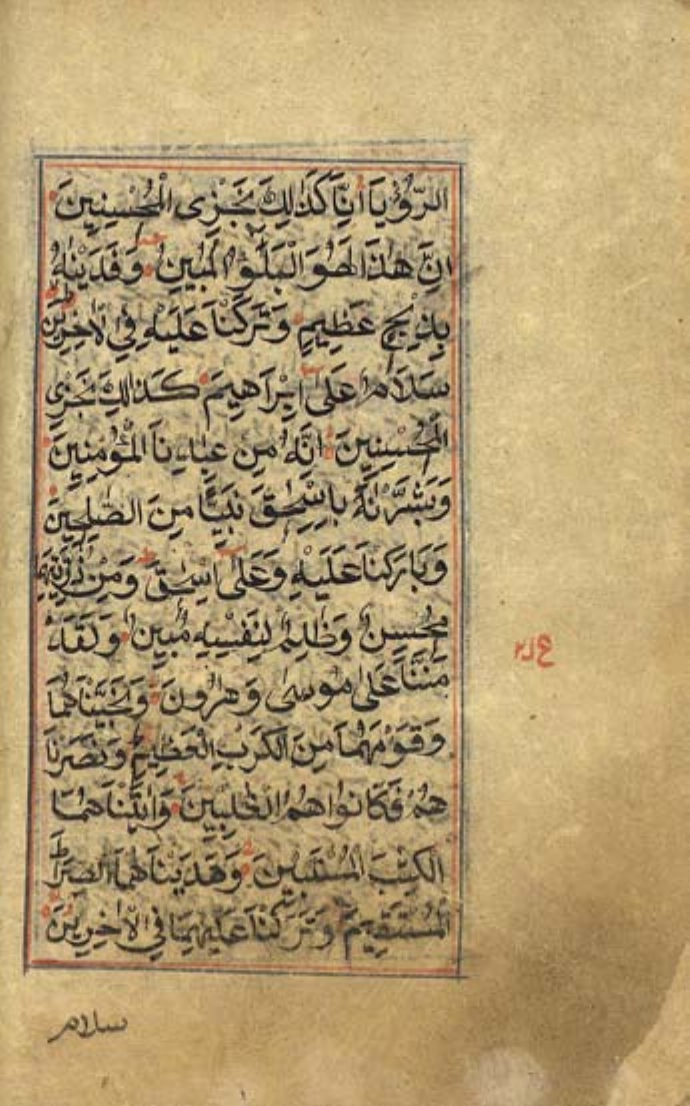 الرُّؤْيَا اِنَّا كَذَالِكَ نَجْزِى الْمُحْسِنِينَ
اِنَّ هٰذَا لَهُوَ الْبَلٰؤُ الْمُبِينُ وَفَدَيْنَاهُ
بِذِبْحٍ عَظِيمٍ وَتَرَكْنَا عَلَيْهِ فِي لْاٰخِرِينَ
سَلَامٌ عَلٰى اِبْرَاهِيمَ كَذَالِكَ نَجْزِى
الْمُحْسِنِينَ اِنَّهُ مِنْ عِبَادِنَا الْمُؤْمِنِينَ
وَبَشَّرْنَاهُ بِاِسْحٰقَ نَبِيًّا مِنَ الصّٰلِحِينَ
وَبَارَكْنَا عَلَيْهِ وَعَلٰى اِسْحٰقَ وَمِنْ ذُرِّيَّتِهِمَا
مُحْسِنٌ وَظَالِمٌ لِنَفْسِهِ مُبِينٌ وَلَقَدْ
مَنَنَّا عَلٰى مُوسٰى وَهٰرُونَ وَنَجَّيْنَاهُمَا
وَقَوْمَهُمَا مِنَ الْكَرْبِ الْعَظِيمِ وَنَصَرْنَا
هُمْ فَكَانُوا هُمُ الْغٰلِبِينَ وَاٰتَيْنَاهُمَا
الْكِتٰبَ الْمُسْتَبِينَ وَهَدَيْنَاهُمَا الصِّرَاطَ
الْمُسْتَقِيمَ وَتَرَكْنَا عَلَيْهِمَا فِي لْاٰخِرِينَ
سلام